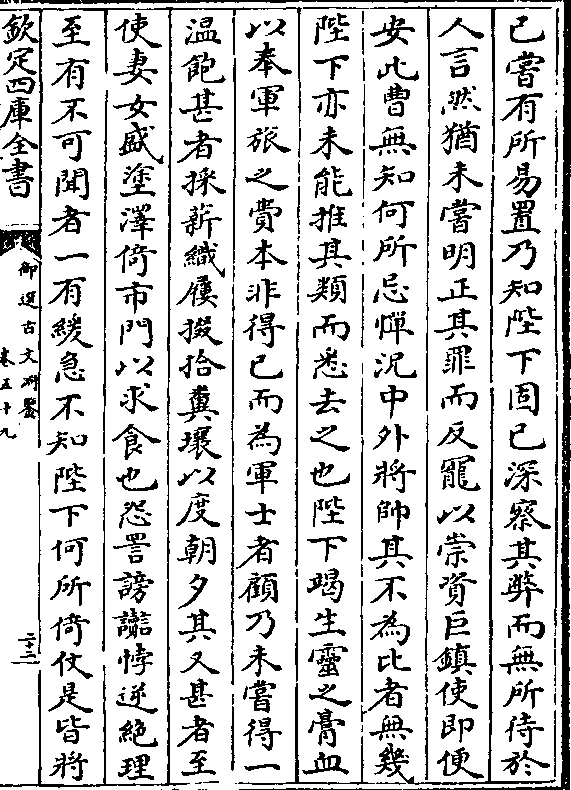 已嘗有所易置乃知陛下固已深察其弊而無所待於
人言然猶未嘗明正其罪而反寵以崇資巨鎮使即便
安此曹無知何所忌憚況中外將帥其不為此者無幾
陛下亦未能推其類而悉去之也陛下竭生靈之膏血
以奉軍旅之費本非得已而為軍士者顧乃未嘗得一
温飽甚者採薪織屨掇拾糞壤以度朝夕其又甚者至
使妻女盛塗澤倚市門以求食也怨詈謗讟悖逆絶理
至有不可聞者一有緩急不知陛下何所倚仗是皆將
欽定四庫全書
御選古文淵鑒
卷五十九
二十二